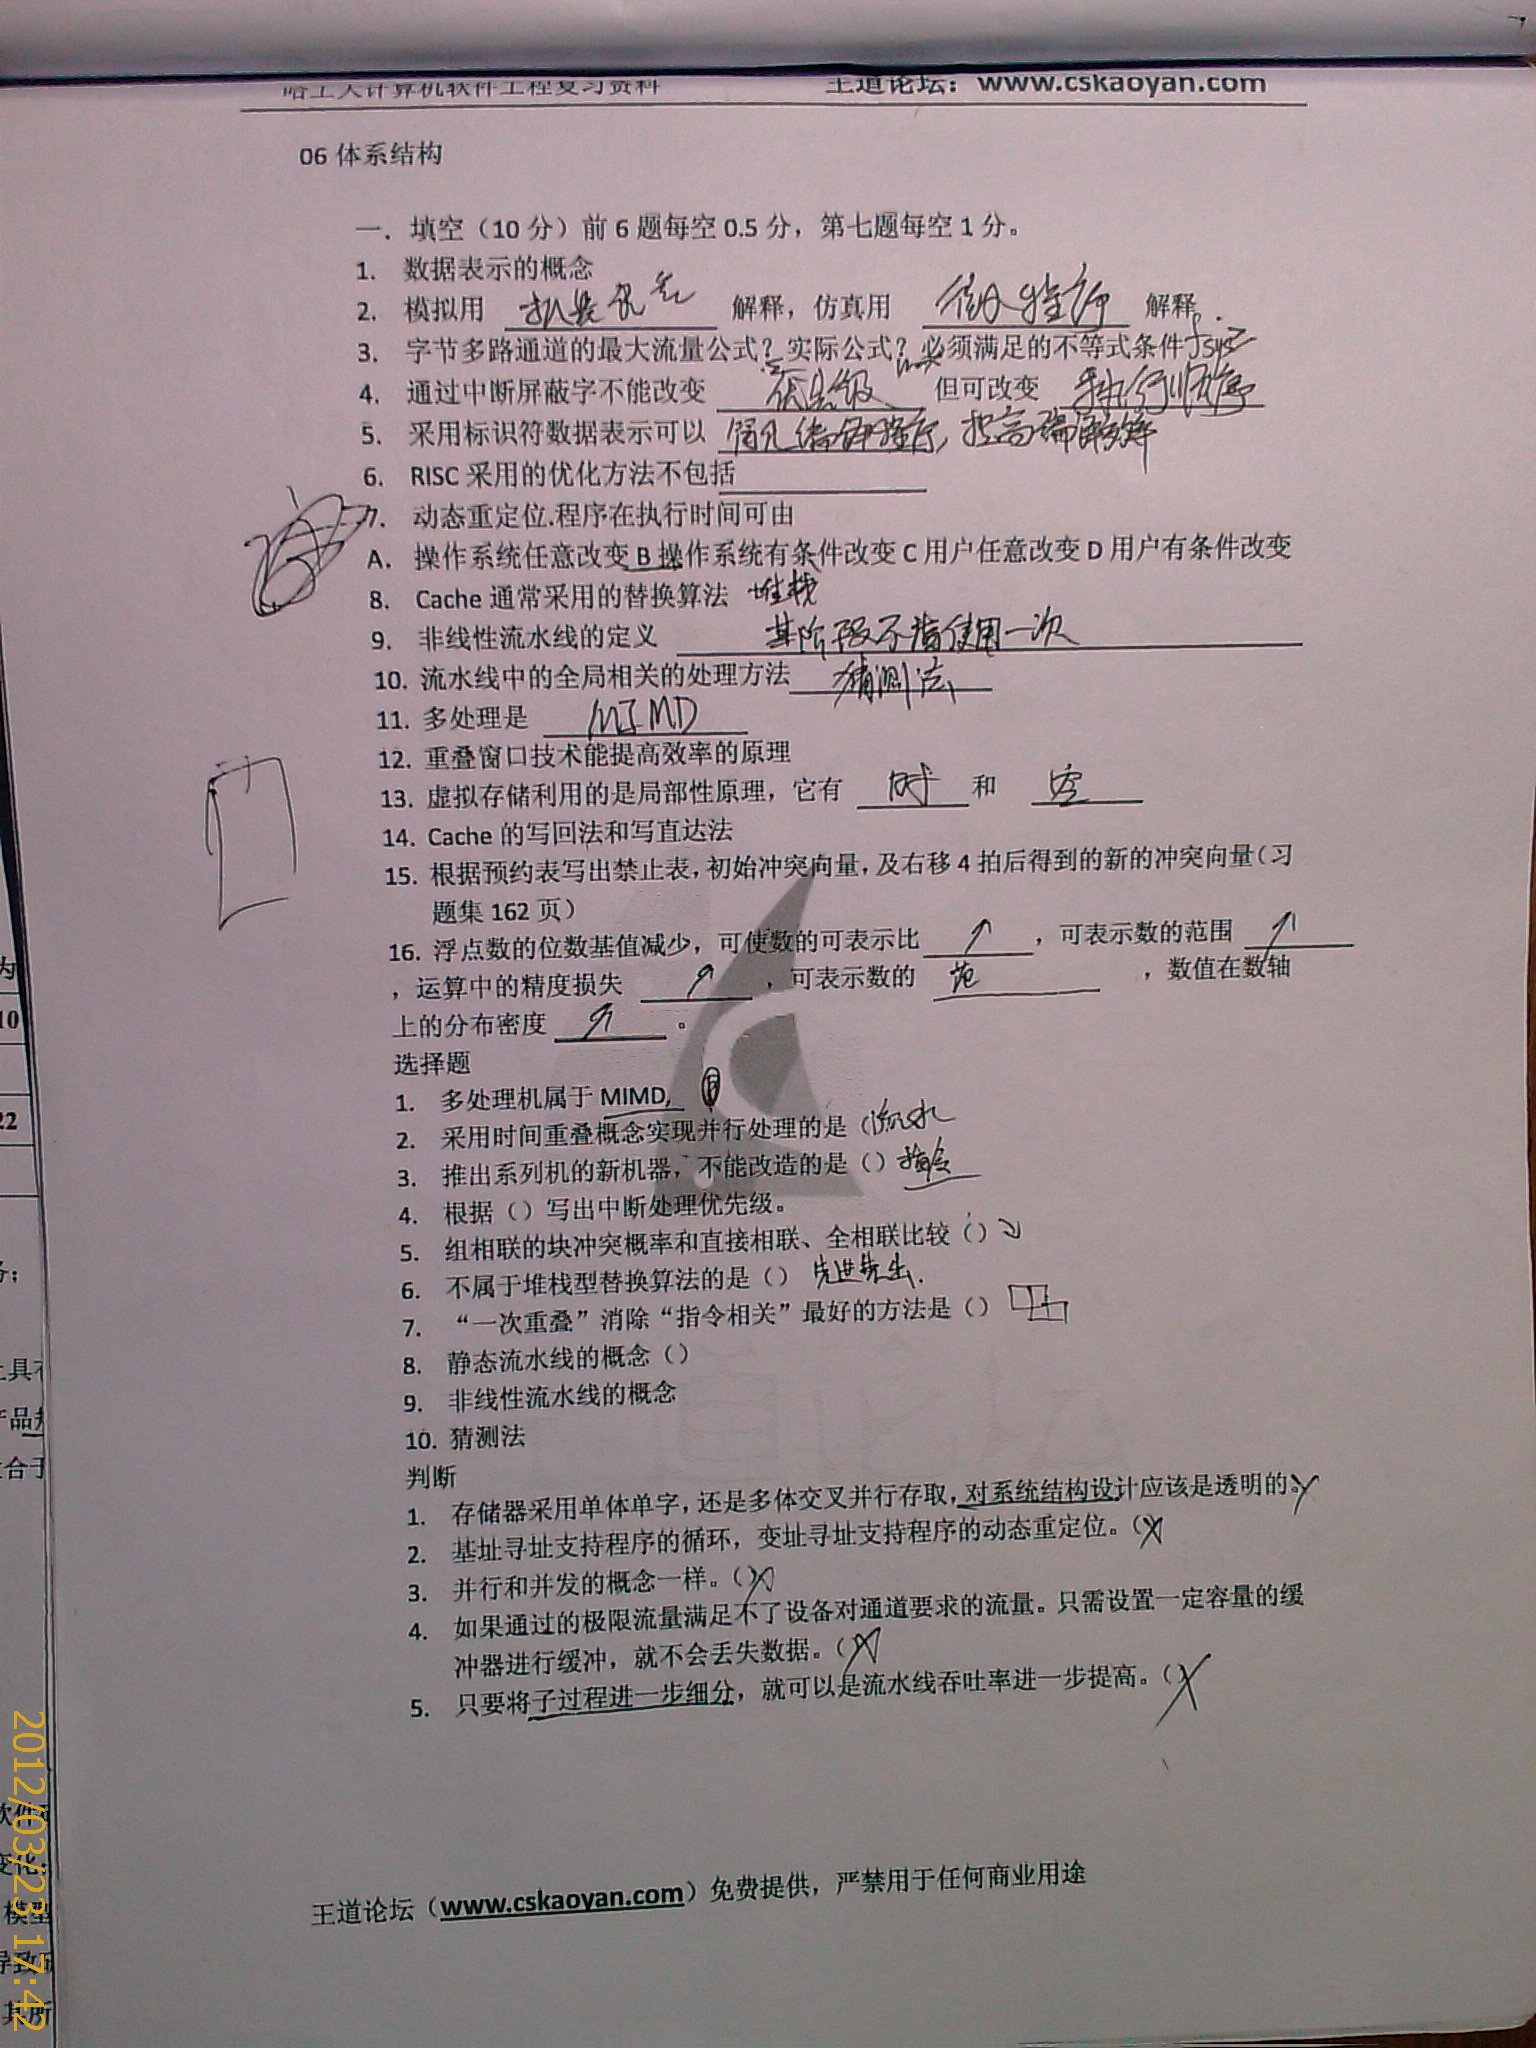 哈工大计算机软件工程复习资料 王道论坛：www.cskaoyan.com
06 体系结构
一．填空（10 分）前 6 题每空 0.5 分，第七题每空 1 分。
1. 数据表示的概念
2. 模拟用 机器语言 解释，仿真用 微程序 解释
3. 字节多路通道的最大流量公式？实际公式？必须满足的不等式条件
4. 通过中断屏蔽字不能改变 优先级 但可改变 执行顺序
5. 采用标识符数据表示可以 简化编译程序，提高编译效率
6. RISC 采用的优化方法不包括
7. 动态重定位.程序在执行时间可由
A. 操作系统任意改变 B 操作系统有条件改变 C 用户任意改变 D 用户有条件改变
8. Cache 通常采用的替换算法 堆栈
9. 非线性流水线的定义 某阶段不满使用一次
10. 流水线中的全局相关的处理方法 猜测法
11. 多处理是 MIMD
12. 重叠窗口技术能提高效率的原理
13. 虚拟存储利用的是局部性原理，它有 时 和 空
14. Cache 的写回法和写直达法
15. 根据预约表写出禁止表，初始冲突向量，及右移 4 拍后得到的新的冲突向量（习
题集 162 页）
16. 浮点数的位数基值减少，可使数的可表示比 ↑ ，可表示数的范围 ↑
，运算中的精度损失 ↑ ，可表示数的 范 ，数值在数轴
上的分布密度 ↑ 。
选择题
1. 多处理机属于 MIMD, B
2. 采用时间重叠概念实现并行处理的是（流水
3. 推出系列机的新机器，不能改造的是（）指令
4. 根据（）写出中断处理优先级。
5. 组相联的块冲突概率和直接相联、全相联比较（）↘
6. 不属于堆栈型替换算法的是（） 先进先出.
7. “一次重叠”消除“指令相关”最好的方法是（）
8. 静态流水线的概念（）
9. 非线性流水线的概念
10. 猜测法
判断
1. 存储器采用单体单字，还是多体交叉并行存取，对系统结构设计应该是透明的。
2. 基址寻址支持程序的循环，变址寻址支持程序的动态重定位。（X
3. 并行和并发的概念一样。（）X
4. 如果通过的极限流量满足不了设备对通道要求的流量。只需设置一定容量的缓
冲器进行缓冲，就不会丢失数据。（X
5. 只要将子过程进一步细分，就可以是流水线吞吐率进一步提高。（）X
王道论坛（www.cskaoyan.com）免费提供，严禁用于任何商业用途
2012/03/23 17:42
为
10
22
务；
具有
产品
合于
软件
变化
模型
导致
其所